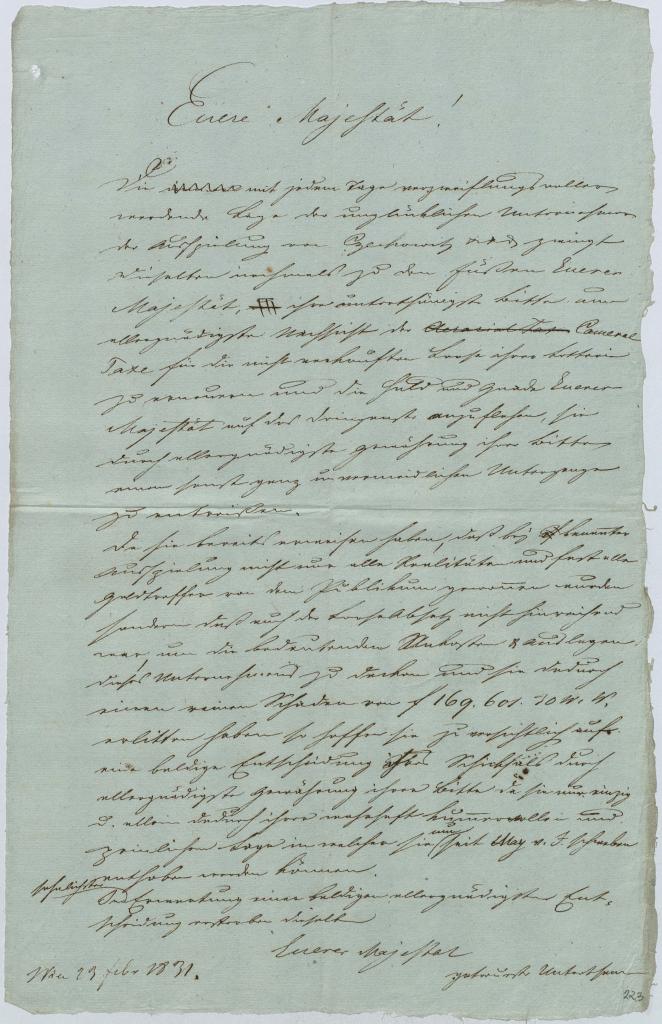 Euere Majestät!
Die mit jedem Tage verzweiflungsvoller
werdende Lage der unglücklichen Unternehmer
der Ausspielung von zwingt
dieselben nochmals zu den Füßen Euerer
Majestät, ihre unterthänigste Bitte um
allergnädigste Nachsicht der Cameral
Taxe für die nicht verkauften Loose ihrer Lotterie
zu erneuern und die Huld und Gnade Euerer
Majestät auf das dringenste anzuflehen, sie
durch allergnädigste Gewährung ihrer Bitte
einem sonst ganz unvermeidlichen Untergange
zu entreißen.
Da sie bereits erwiesen haben, daß bei benannter
Ausspielung nicht nur alle Realitäten und fast alle
Geldtreffer von dem Publikum gewonnen wurden
sondern daß auch der Looseabsatz nicht hinreichend
war, um die bedeutenden Unkosten & Auslagen
dieses Unternehmens zu decken und sie dadurch
einen reinen Schaden von f 169.601. 30 W. W.
erlitten haben so hoffen sie zuversichtlich auf
eine baldige Entscheidung ihres Schicksals durch
allergnädigste Gewährung ihrer Bitte da sie nur einzig
u. allein dadurch ihrer wahrhaft kummervollen und
peinlichen Lage in welcher sie nun seit May v. J. schweben
enthoben werden können.
In sehnlichster Erwartung einer baldigen allergnädigsten Ent-
scheidung ersterben dieselben
Euerer Majestät
Wien 23 Febr 1831.
getreuste Unterthanen
223